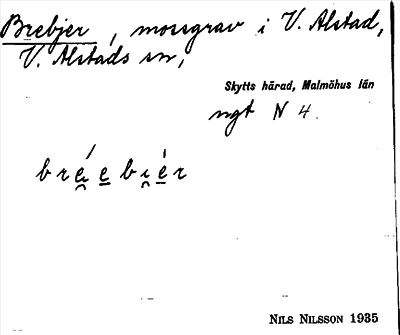 Brebjer, mossgrav i V. Alstad,
V. Alstads sn,
Skytts härad, Malmöhus län
ngt N 4.
bré̯e̲bi̯é̲r
NILS NILSSON 1935